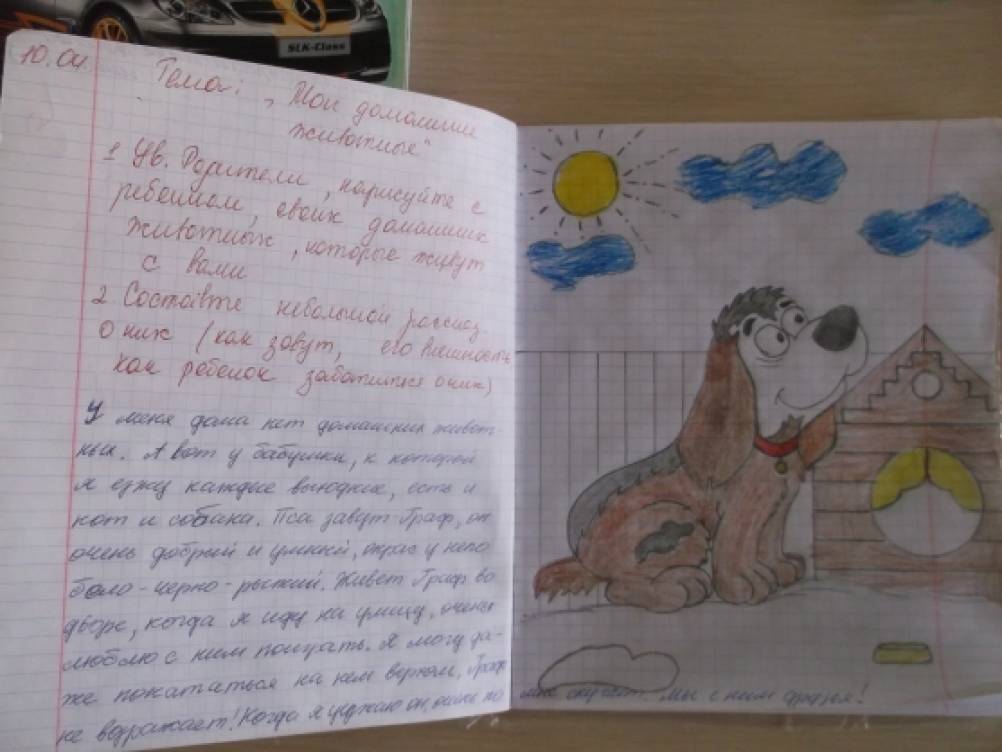 SLK-Class
10.04.
Тема: „Мои домашние
животные"
1 Ув. Родители, нарисуйте с
ребенком, своих домашних
животных, которые живут
с вами
2 Составте небольшой рассказ
о них (как зовут, его внешность,
как ребенок заботится о них)
У меня дома нет домашних живот-
ных. А вот у бабушки, к которой
я езжу каждые выходные, есть и
кот и собака. Пса зовут Граф, он
очень добрый и умный, окрас у него
бело-черно-рыжий. Живет Граф во
дворе, когда я иду на улицу, очень
люблю с ним поиграть. Я могу да-
же покататься на нем верхом, Граф
не возражает! Когда я уезжаю он, очень по мне скучает. Мы с ним друзья!